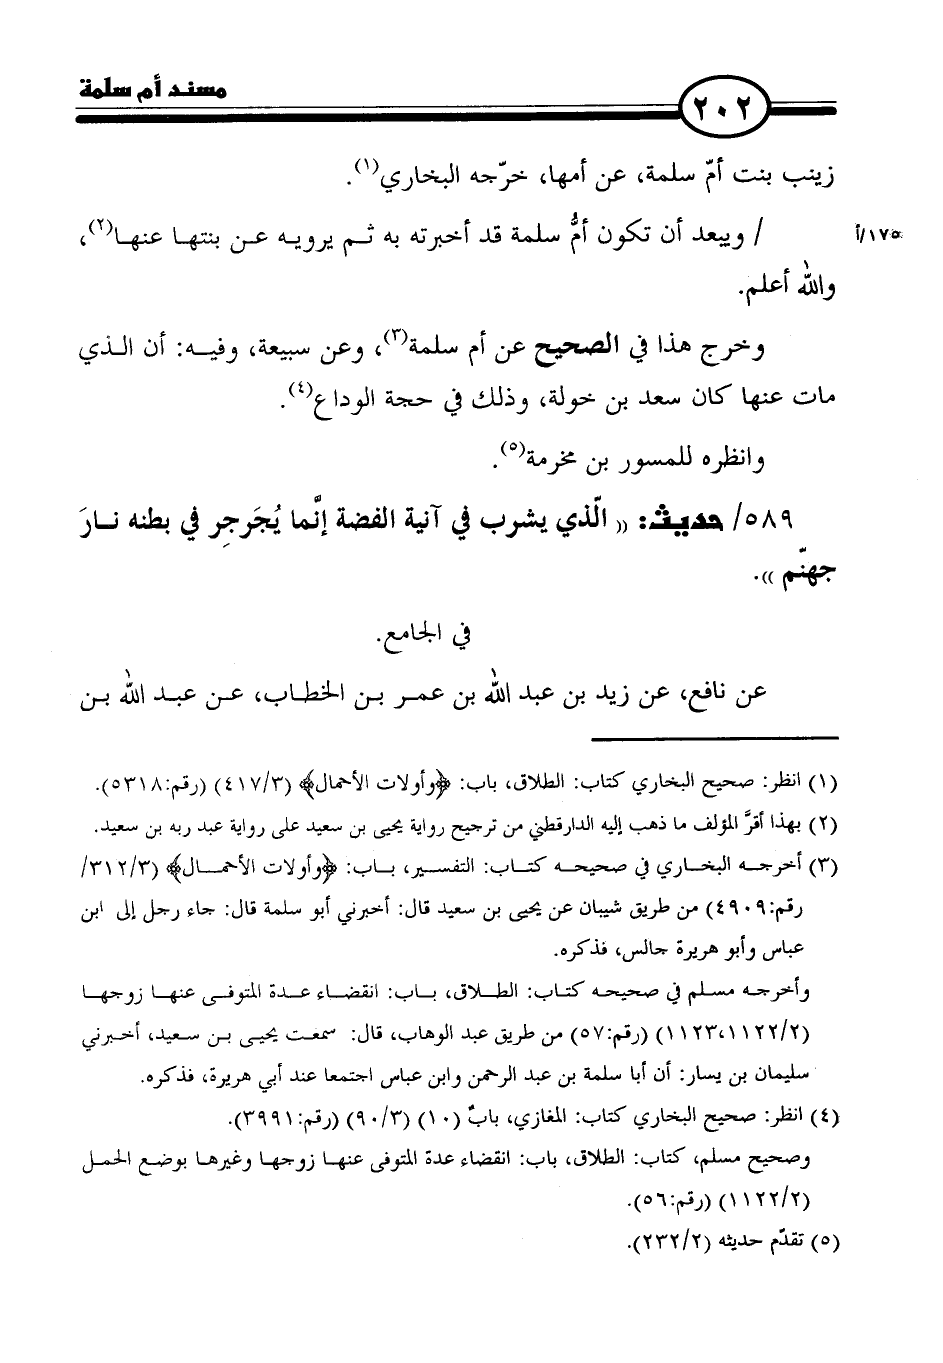 مسند أم سلمة
٢٠٢
زينب بنت أمّ سلمة، عن أمها، خرّجه البخاري(١).
١٧٥/أ
/ ويبعد أن تكون أمُّ سلمة قد أخبرته به ثم يرويه عن بنتها عنها(٢)،
والله أعلم.
وخرج هذا في الصحيح عن أم سلمة(٣)، وعن سبيعة، وفيه: أن الذي
مات عنها كان سعد بن خولة، وذلك في حجة الوداع(٤).
وانظره للمسور بن مخرمة(٥).
٥٨٩/ حديث: « الّذي يشرب في آنية الفضة إنَّما يُجَرجِر في بطنه نارَ
جهنّم ».
في الجامع.
عن نافع، عن زيد بن عبد الله بن عمر بن الخطاب، عن عبد الله بن
(١) انظر: صحيح البخاري كتاب: الطلاق، باب: ﴿وأولات الأحمال﴾ (٤١٧/٣) (رقم:٥٣١٨).
(٢) بهذا أقرَّ المؤلف ما ذهب إليه الدارقطني من ترجيح رواية يحيى بن سعيد على رواية عبد ربه بن سعيد.
(٣) أخرجه البخاري في صحيحه كتاب: التفسير، باب: ﴿وأولات الأحمال﴾ (٣١٢/٣/
رقم:٤٩٠٩) من طريق شيبان عن يحيى بن سعيد قال: أخبرني أبو سلمة قال: جاء رجل إلى ابن
عباس وأبو هريرة جالس، فذكره.
وأخرجه مسلم في صحيحه كتاب: الطلاق، باب: انقضاء عدة المتوفى عنها زوجها
(١١٢٣،١١٢٢/٢) (رقم:٥٧) من طريق عبد الوهاب، قال: سمعت يحيى بن سعيد، أخبرني
سليمان بن يسار: أن أبا سلمة بن عبد الرحمن وابن عباس اجتمعا عند أبي هريرة، فذكره.
(٤) انظر: صحيح البخاري كتاب: المغازي، بابٌ (١٠) (٩٠/٣) (رقم:٣٩٩١).
وصحيح مسلم، كتاب: الطلاق، باب: انقضاء عدة المتوفى عنها زوجها وغيرها بوضع الحمل
(١١٢٢/٢) (رقم:٥٦).
(٥) تقدّم حديثه (٢٣٢/٢).